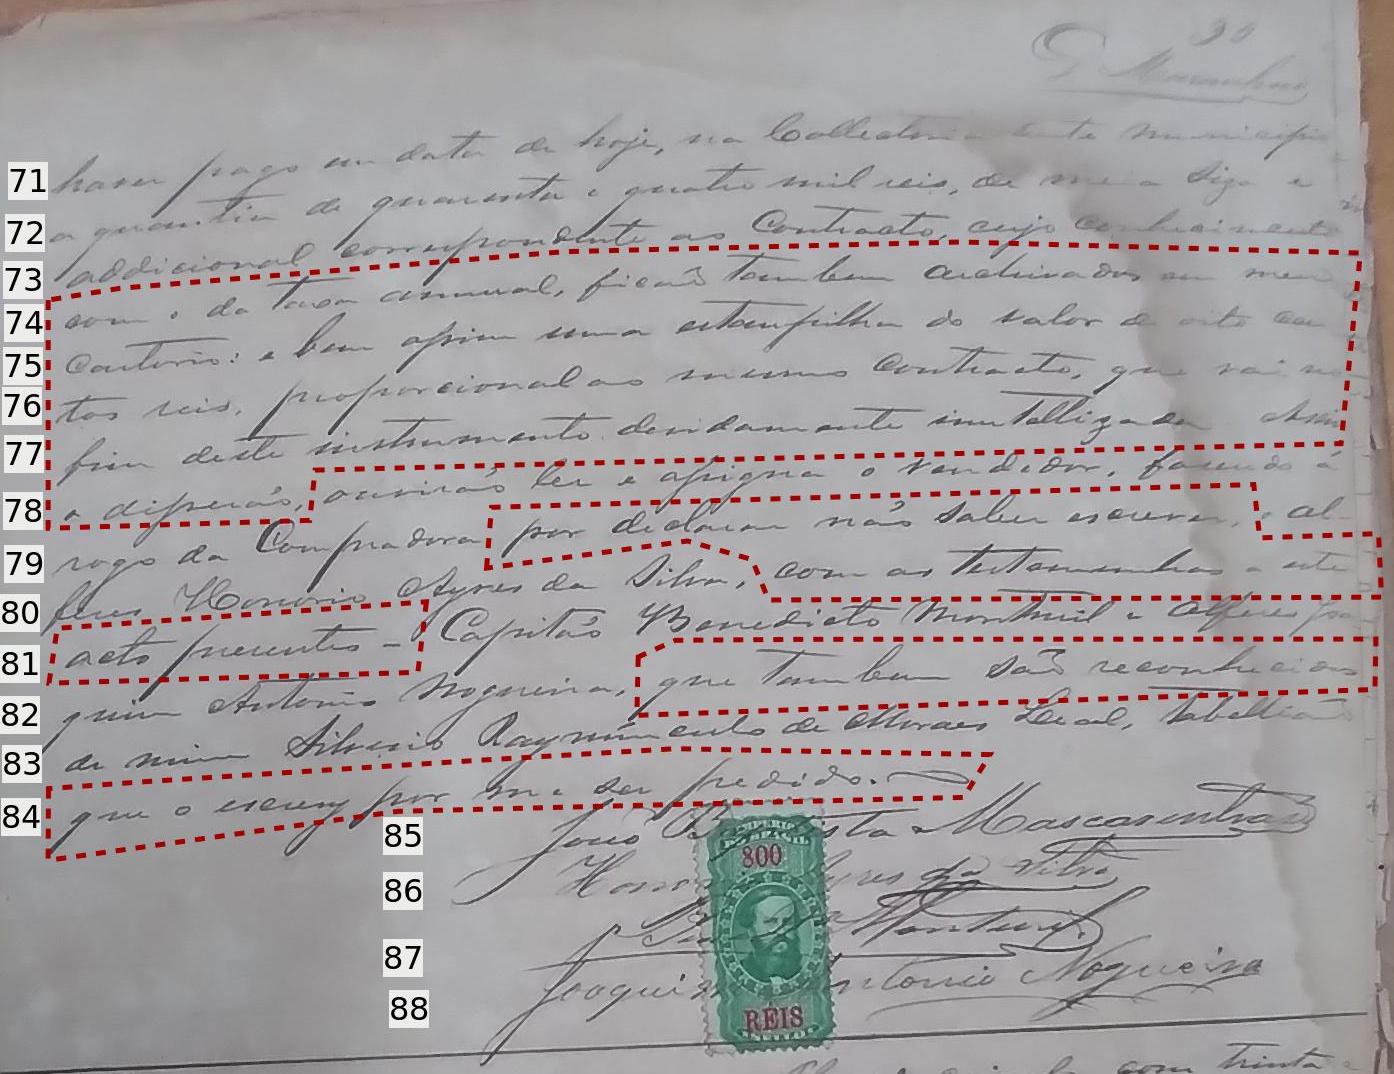 30
G Maranhão
71 haver pago em data de hoje, na Collectoria deste municipio
72 a quantia de quarenta e quatro mil reis, de meia siza e
73 addicional correspondente ao Contracto, cujo conhecimento
74 com o da taxa annual, ficaõ tambem archivados em meu
75 Cartorio: e bem assim uma estampilha do valor de oito cen
76 tos reis, proporcional ao mesmo contracto, que vai no
77 fim deste instrumento devidamente inutillizada. Assim
78 o disseraõ, ouviraõ ler e assigna o vendedor, fasendo á
79 rogo da Compradora por declarar naõ saber escrever, o al-
80 feres Honorio Ayres da Silva, com as testemunhas a este
81 acto presentes - Capitaõ Benedicto Monteiril e alferes Joa
82 quim Antonio Nogueira, que tambem saõ reconhecidos
83 de mim Silverio Raymundo de Moraes Leal, Tabelliaõ
84 que o escrevy por me ser pedido.
85 Joaõ Baptista Mascarenhas
86 Honorio Ayres da Silva
87
88 Joaquim Antonio Nogueira
800
REIS
com trinta